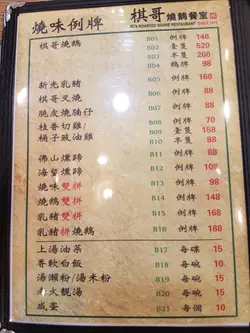 燒味例牌
棋哥
燒鵝餐室
KI'S ROASTED GOOSE RESTAURANT
棋哥燒鵝 B01 例牌 148
B02 壹隻 520
B03 半隻 260
B04 鵝脾 98
新光乳豬 B05 例牌 168
棋哥叉燒 B06 例牌 88
脆皮燒腩仔 B07 例牌 88
桂香切雞 B08 例牌 88
桶子豉油雞 B09 例牌 88
佛山燻蹄 B11 例牌 88
海蜇燻蹄 B12 例牌 88
燒味雙拼 B13 例牌 108
燒鵝雙拼 B14 例牌 158
乳豬雙拼 B15 例牌 168
乳豬拼燒鵝 B16 例牌 188
上湯油菜 B17 每碟 15
香軟白飯 B18 每碗 15
湯瀨粉/湯米粉 B19 每碗 15
老火靚湯 B20 每碗 15
咸蛋 B21 每個 10